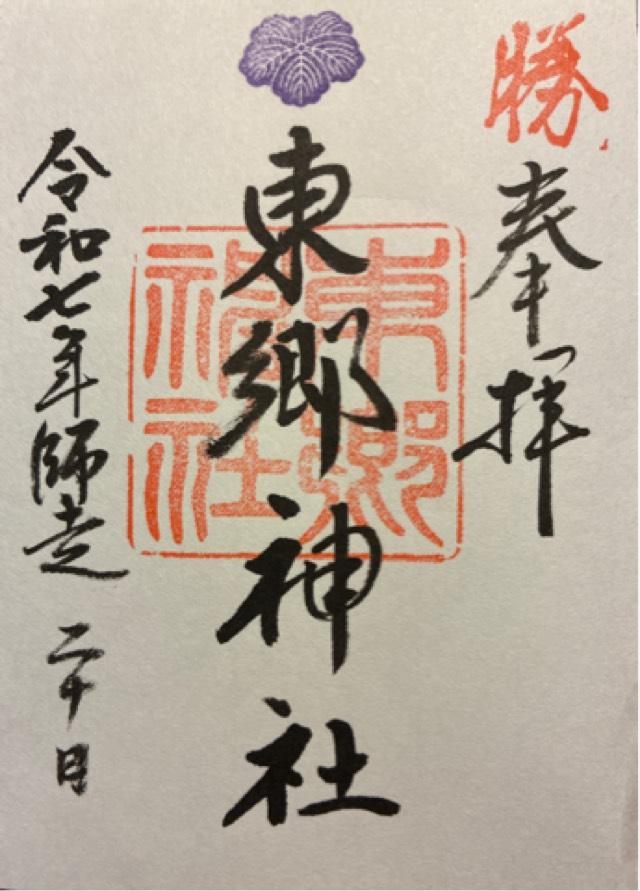 勝
奉拝
東郷神社
東郷神社
令和七年師走二十日